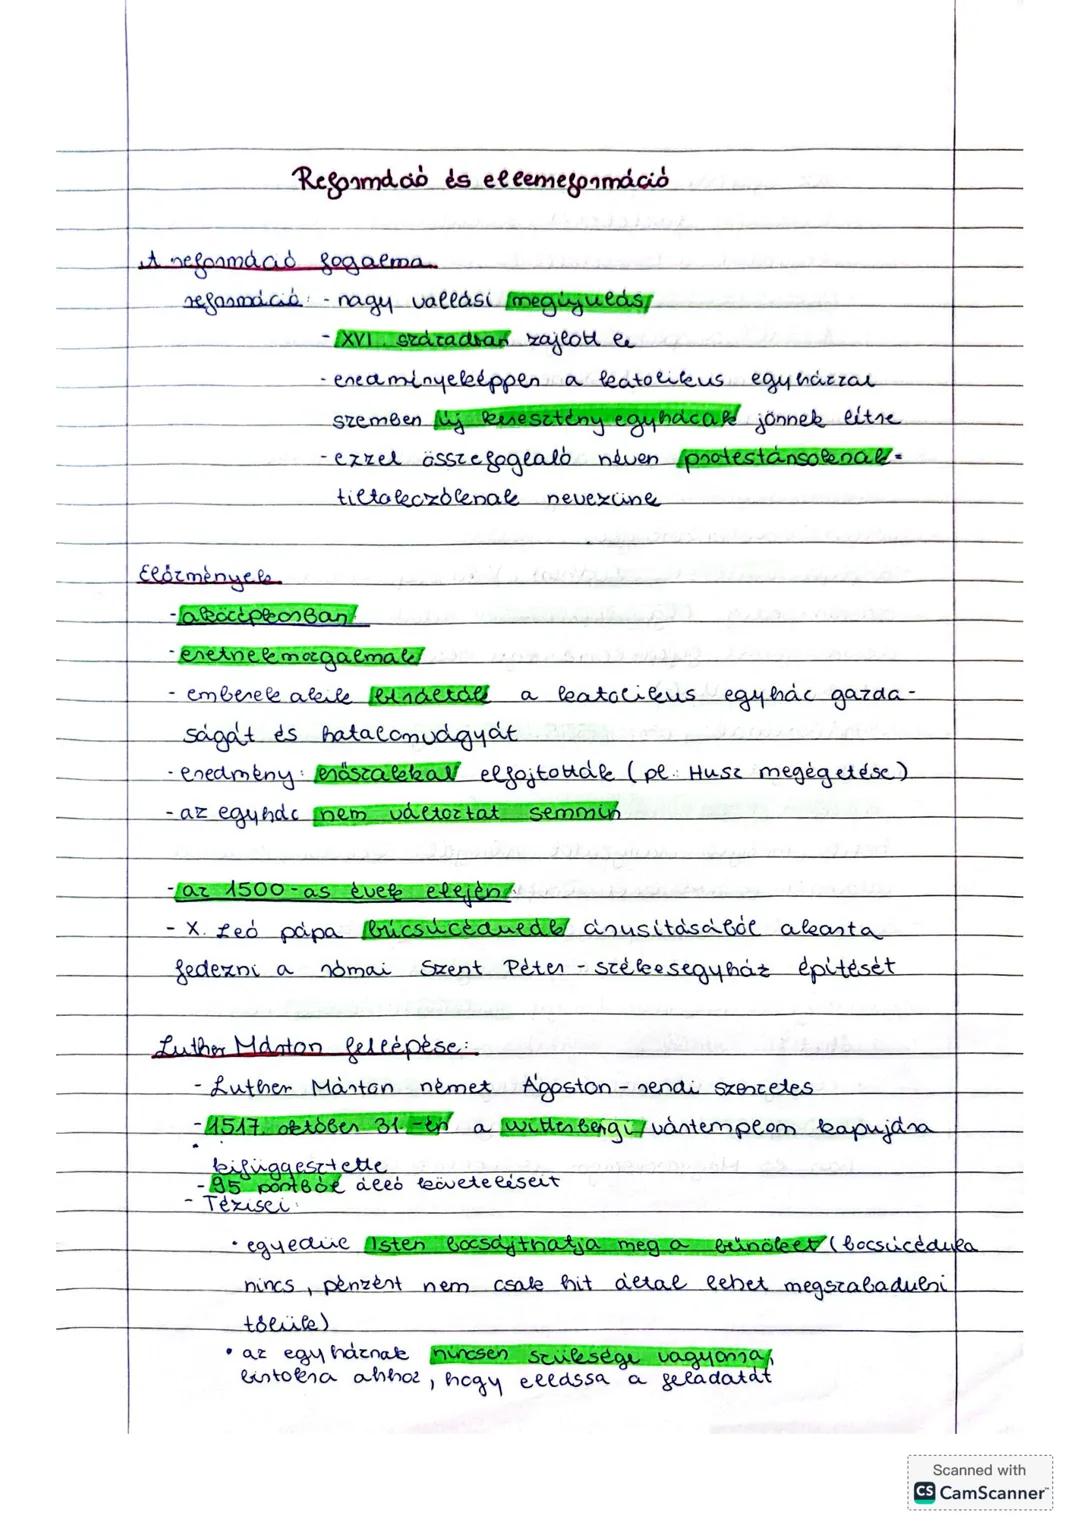 Reformáció és ellenreformáció
A reformáció fogalma
reformáció: - nagy vallási megújulás
- XVI. században zajlott le
- eredményeképpen a katolikus egyházzal
szemben új keresztény egyházak jönnek létre
- ezzel összefoglaló néven protestánsoknak =
tiltakozóknak nevezünk
Előzmények
- a középkorban
- eretnekmozgalmak
- emberek akik bírálták a katolikus egyház gazda-
ságát és hatalomvágyát
- eredmény: erőszakkal elfojtották (pl.: Husz megégetése)
- az egyház nem változtat semmin
- az 1500-as évek elején
- X. Leó pápa búcsúcédulák árusításából akarta
fedezni a római Szent Péter - székesegyház építését
Luther Márton fellépése:
- Luther Márton német Ágoston - rendi szerzetes
- 1517. október 31.-én a wittenbergi vártemplom kapujára
kifüggesztette
- 95 pontból álló követeléseit
- Tézisei:
• egyedül Isten bocsájthatja meg a bűnöket (bocsúcédula
nincs, pénzért nem csak hit által lehet megszabadulni
tőlük)
• az egyháznak nincsen szüksége vagyonra,
birtokra ahhoz, hogy ellássa a feladatát
Scanned with
CS CamScanner